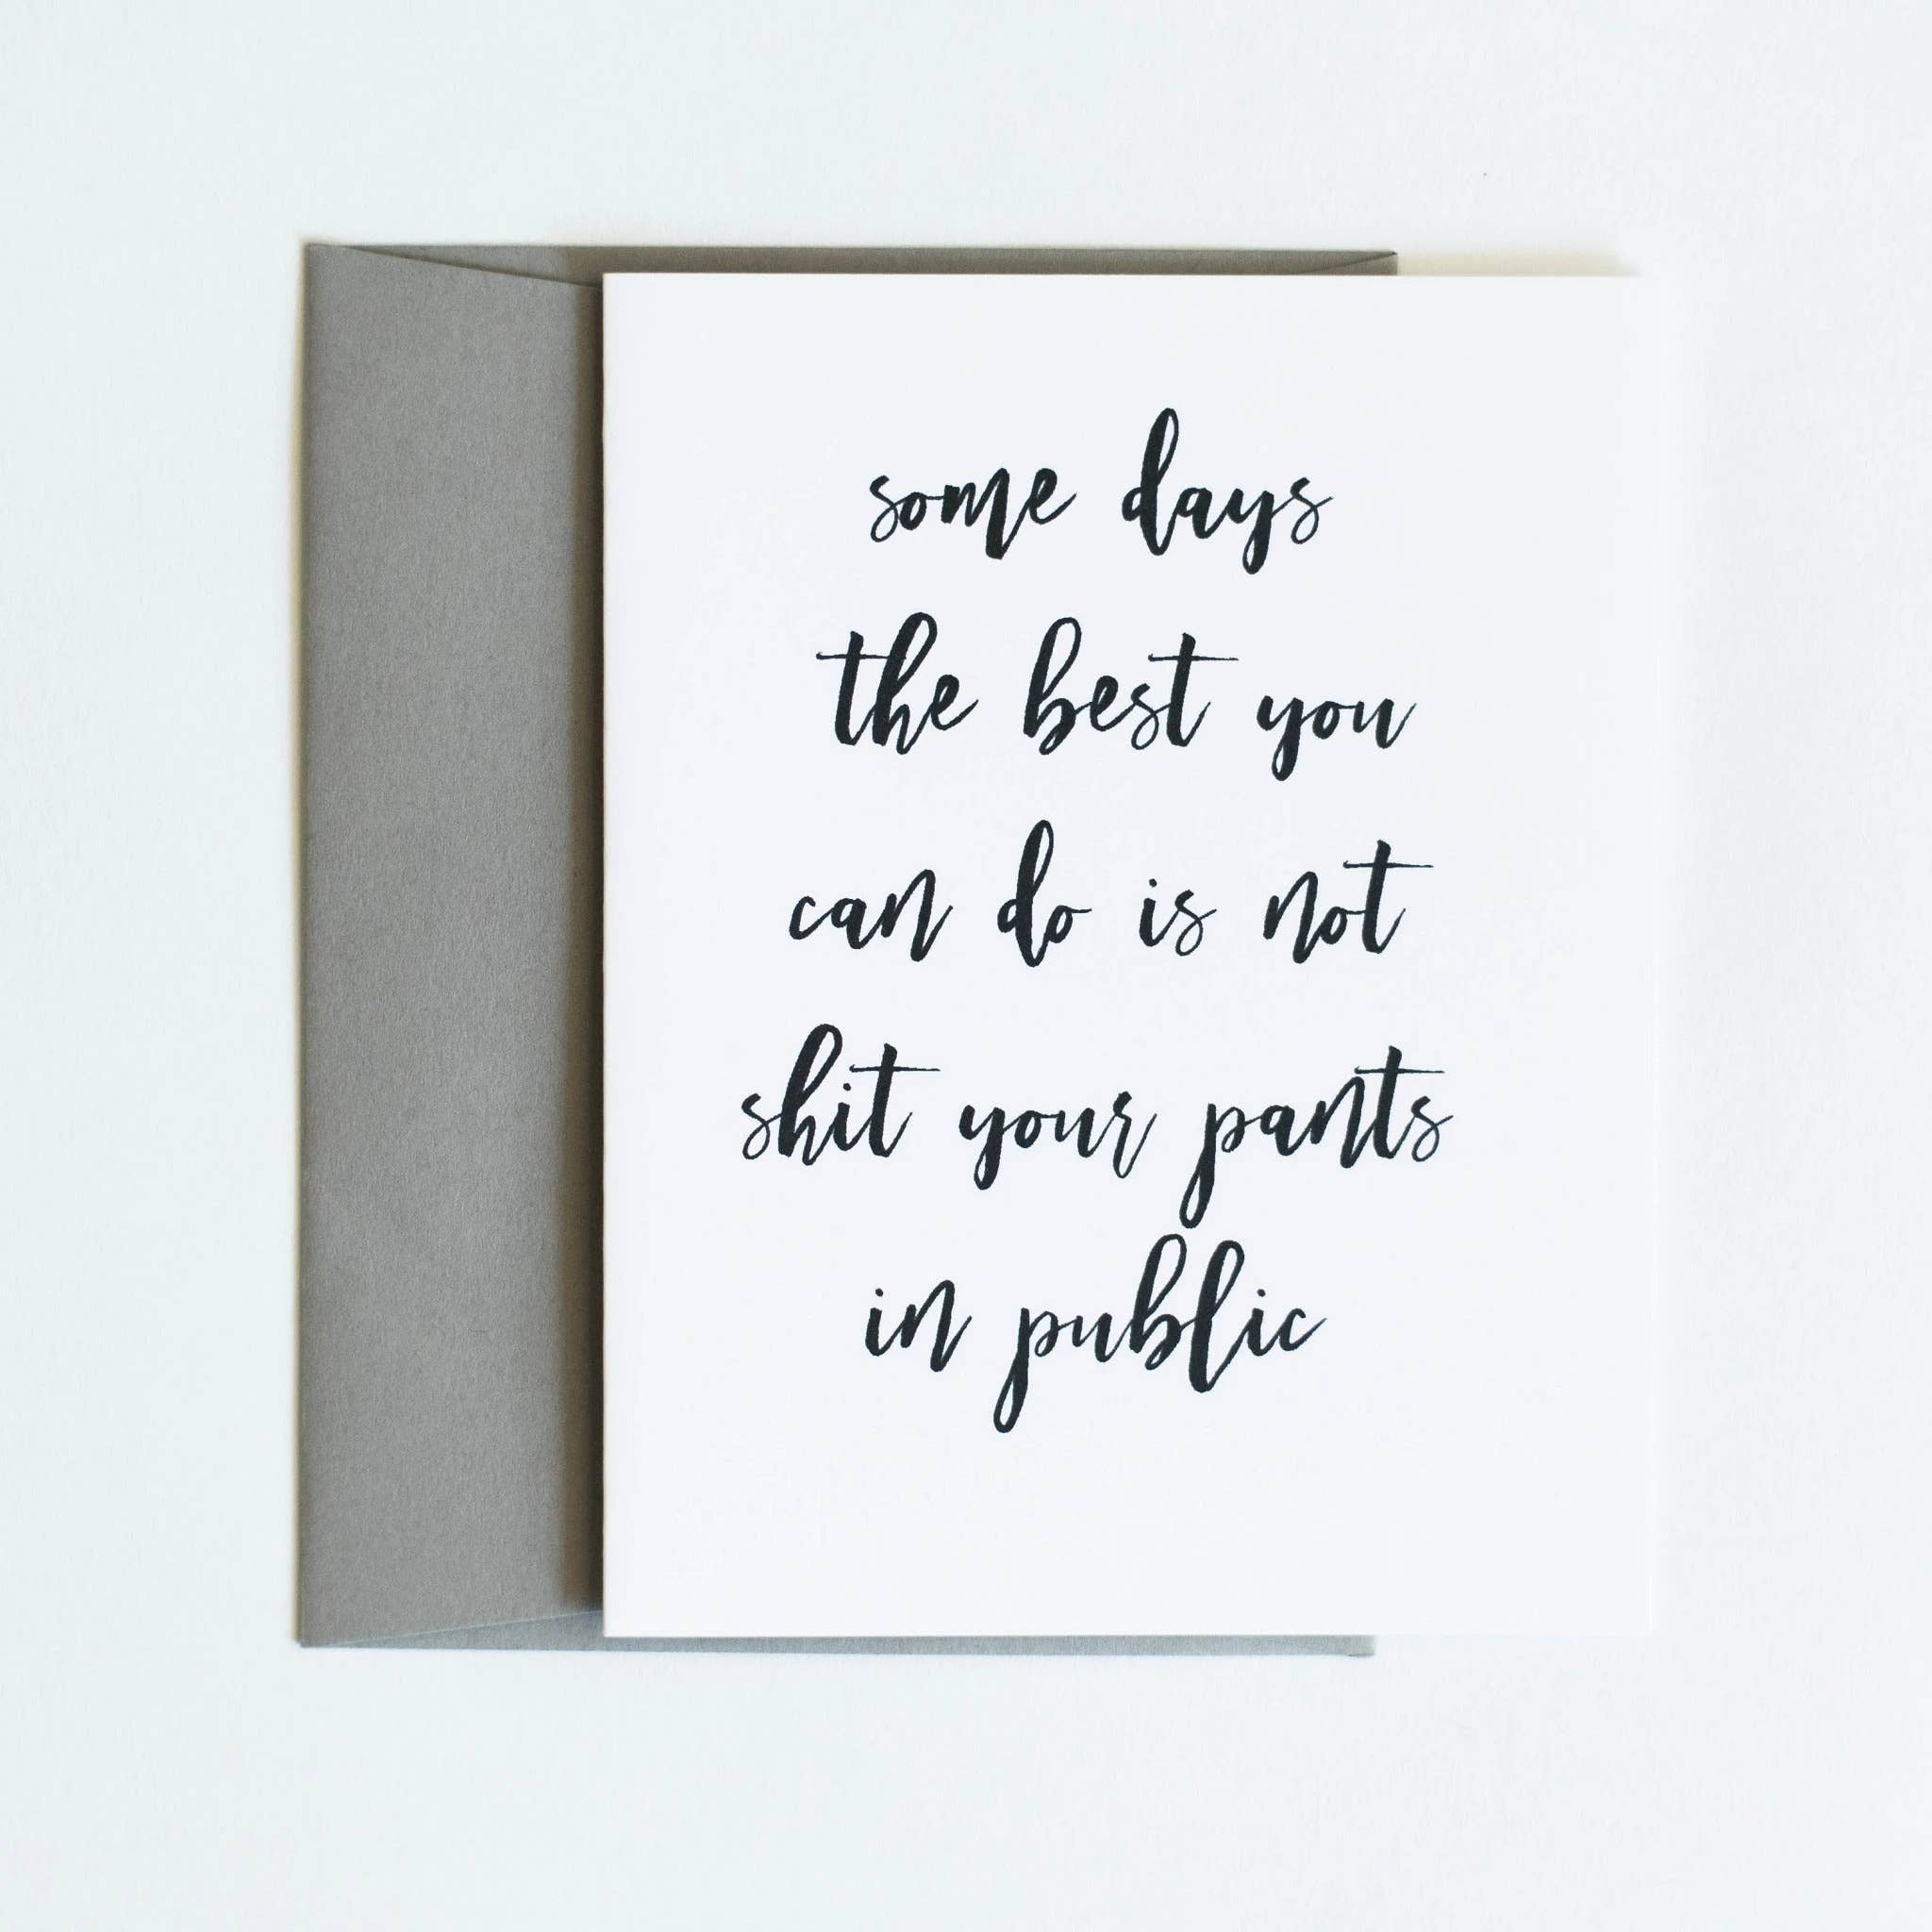 some days
the best you
can do is not
shit your pants
in public